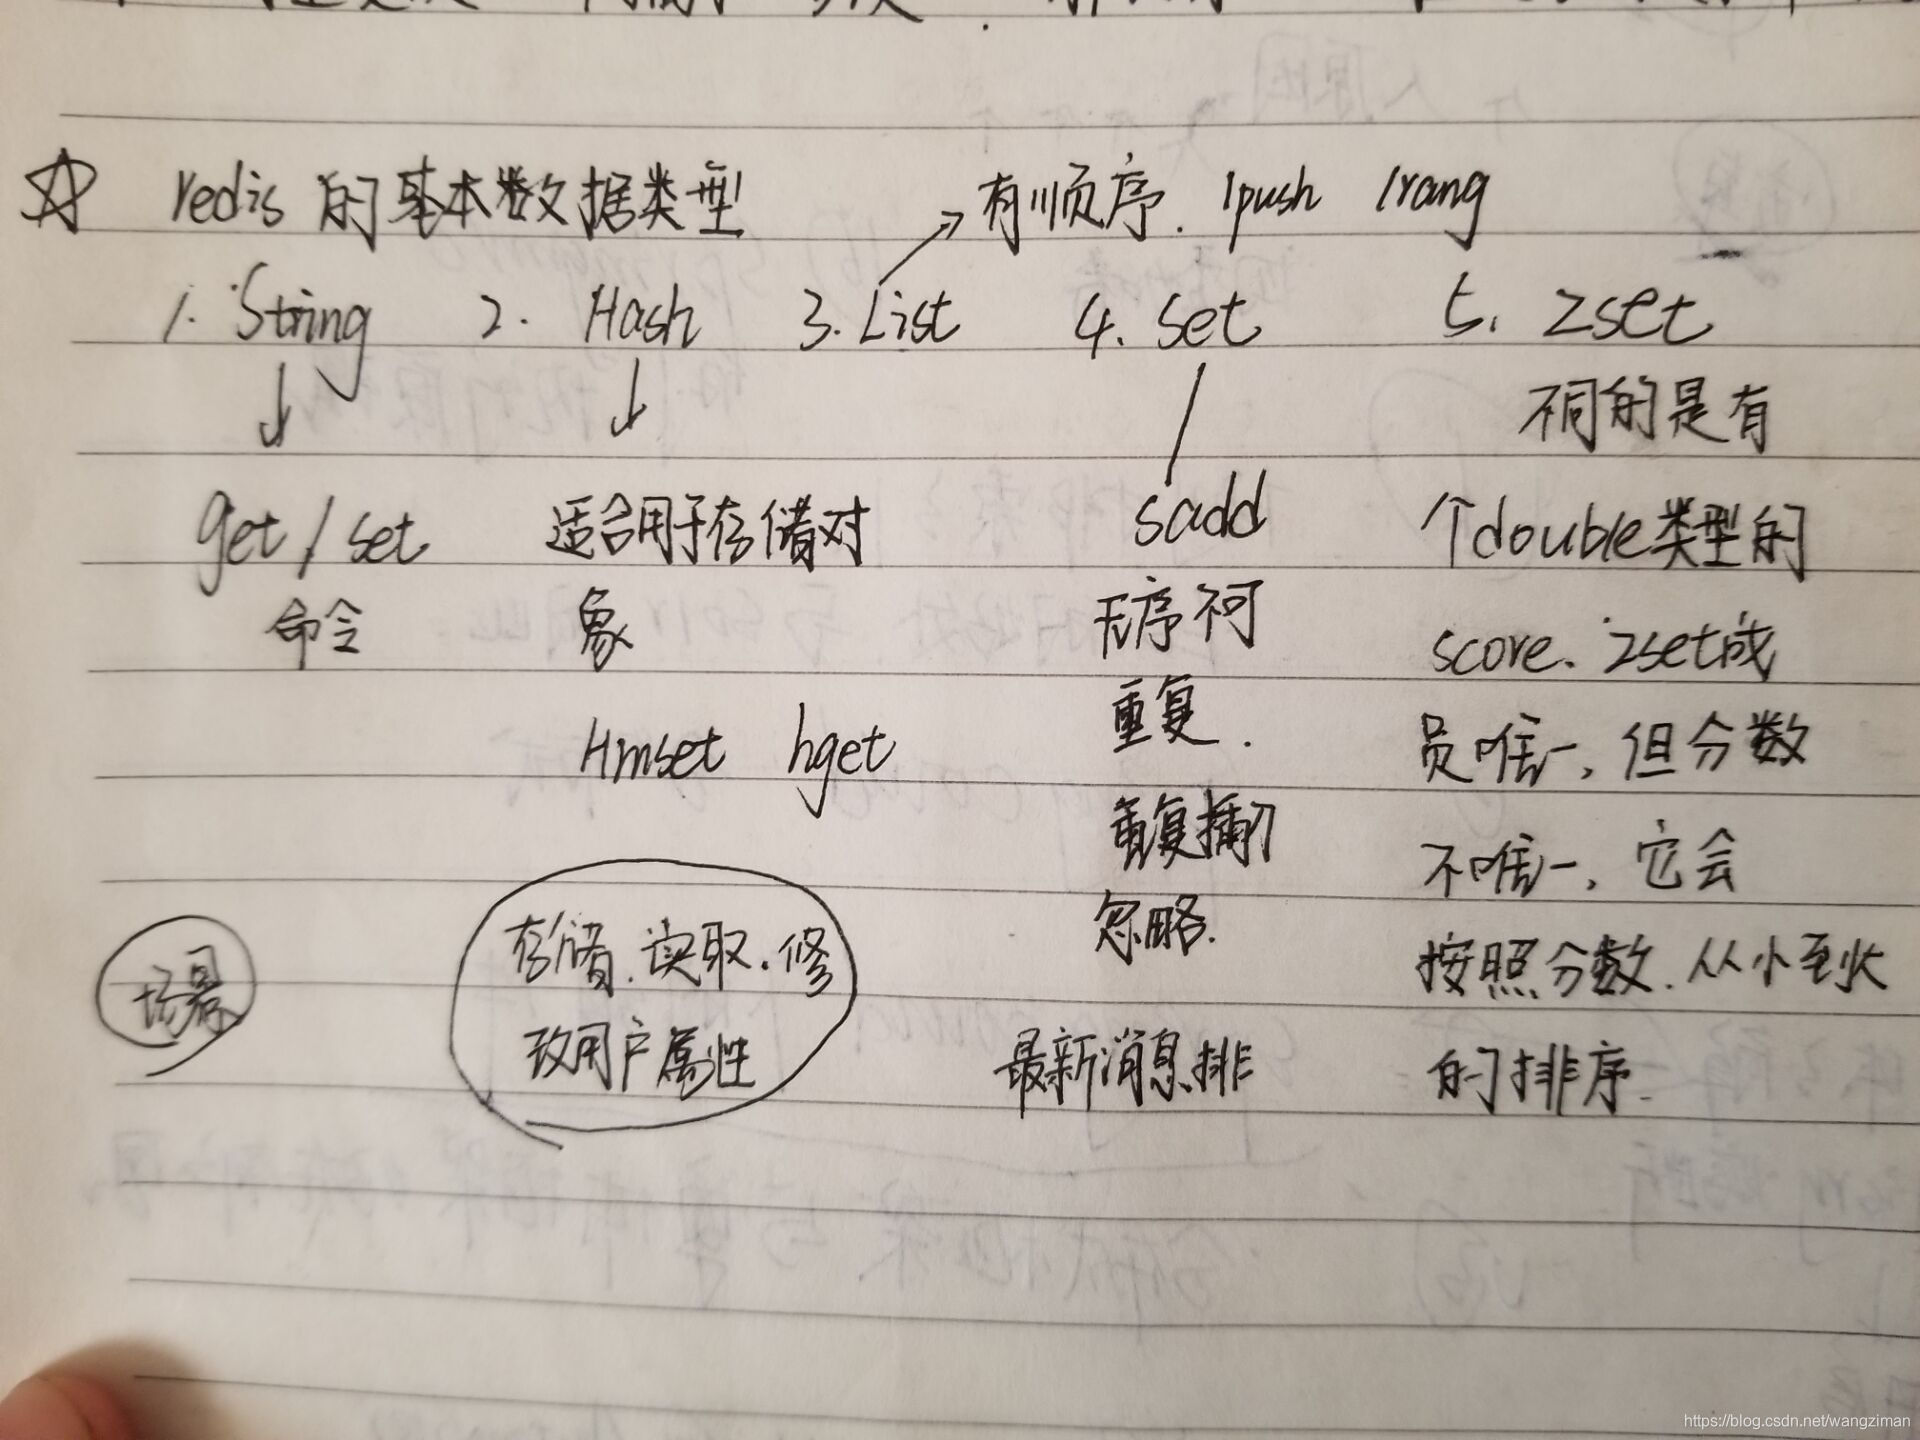 ☆ redis 的基本数据类型
有顺序. lpush lrang
1. String 2. Hash 3. List 4. Set 5. Zset
get / set
命令
适合用于存储对
象
Hmset hget
sadd
无序不可
重复.
重复插入
忽略.
不同的是有
个double类型的
score. zset成
员唯一, 但分数
不唯一, 它会
按照分数. 从小到大
的排序.
场景
存储. 读取. 修
改用户属性
最新消息排
https://blog.csdn.net/wangziman